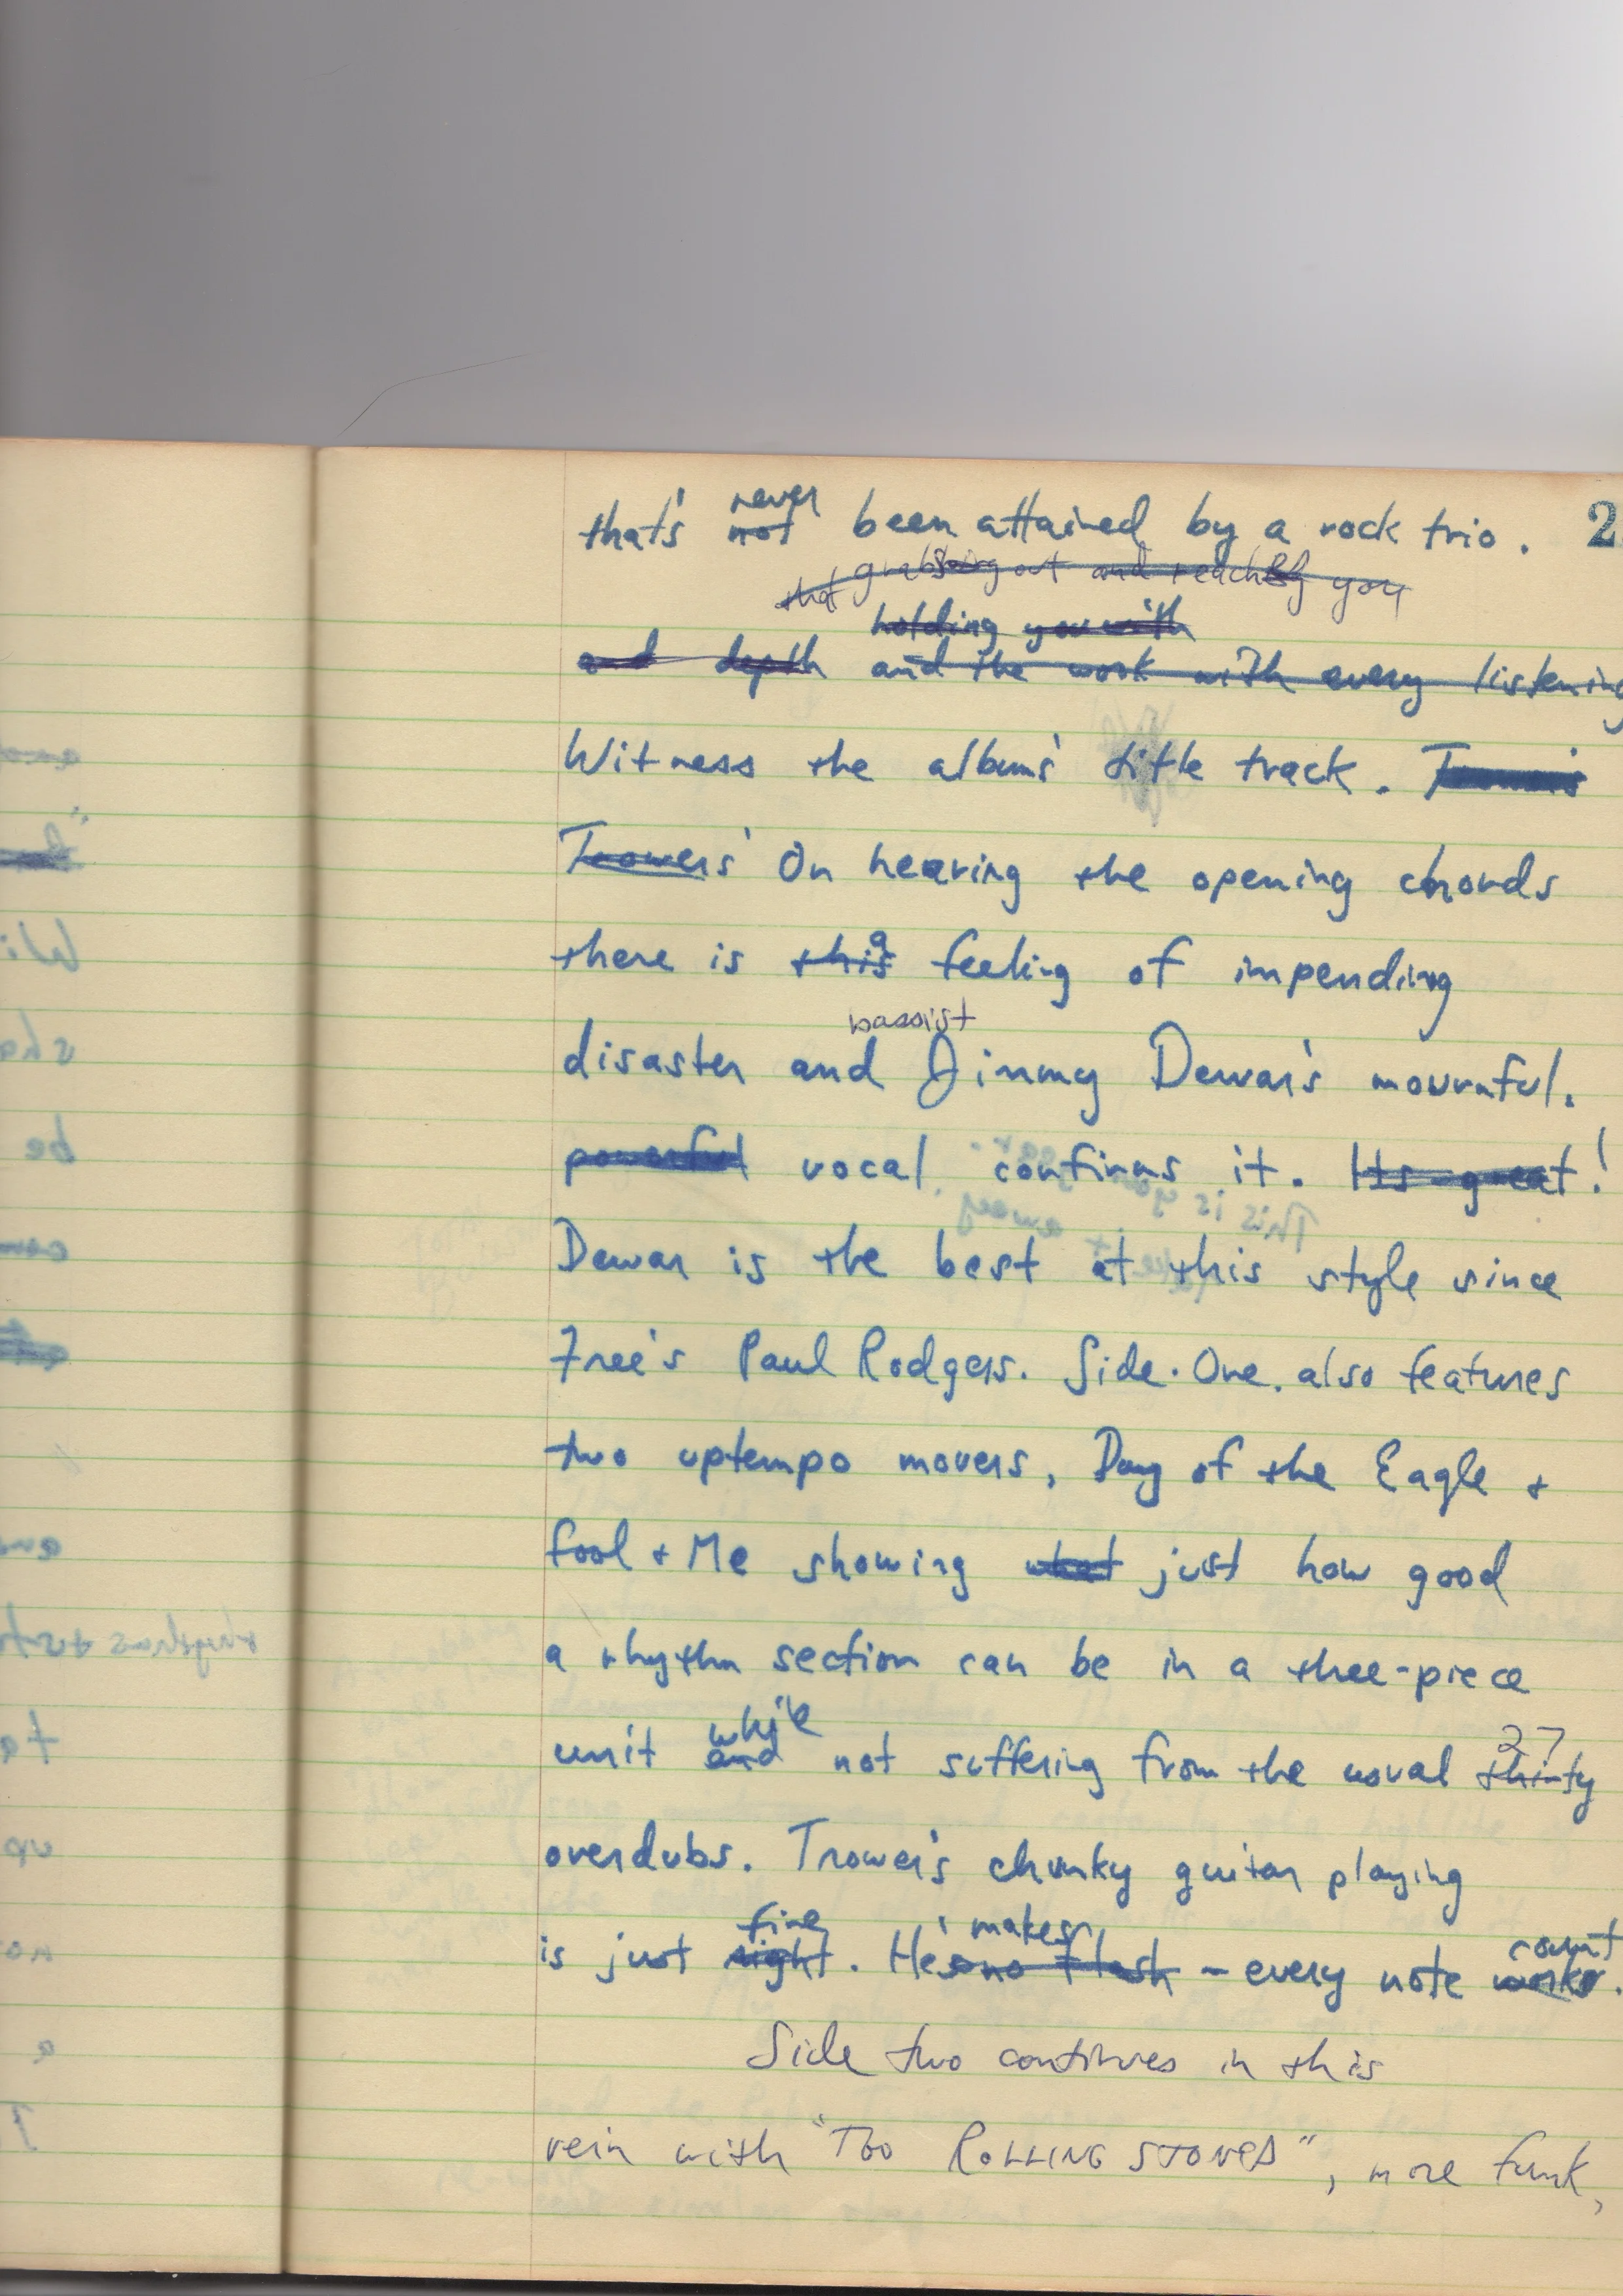 never
that's not been attained by a rock trio. 2
that grabbing out and reach you
holding you with
and depth and the work with every listening
Witness the album's title track. Trower's
Trowers' On hearing the opening chords
a
there is this feeling of impending
bassist
disaster and Jimmy Dewar's mournful.
powerful vocal confirms it. Its great!
Dewar is the best at this style since
Free's Paul Rodgers. Side. One. also features
two uptempo movers, Day of the Eagle +
fool + Me showing what just how good
a rhythm section can be in a thee-piece
while 27
unit and not suffering from the usual thirty
overdubs. Trower's chunky guitar playing
fine makes count
is just right. He's no flash - every note works.
Side two continues in this
vein with "Too ROLLING STONED", more funk,